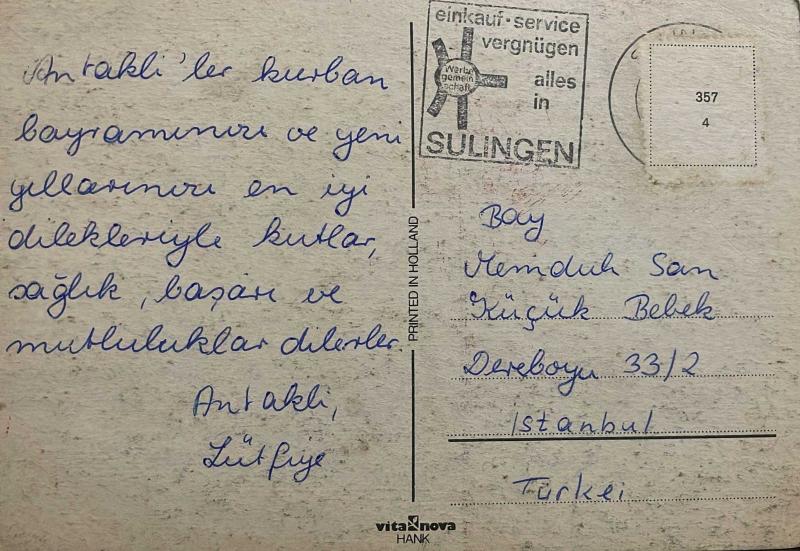 Antakli'ler kurban
bayramınızı ve yeni
yıllarınızı en iyi
dilekleriyle kutlar,
sağlık, başarı ve
mutluluklar dilerler.
Antakli,
Lütfiye
einkauf-service
vergnügen
alles
in
SULINGEN
Werbe
gemein
schaft
357
4
PRINTED IN HOLLAND
Bay
Memduh San
Küçük Bebek
Dereboyu 33/2
istanbul
Türkei
vita nova
HANK